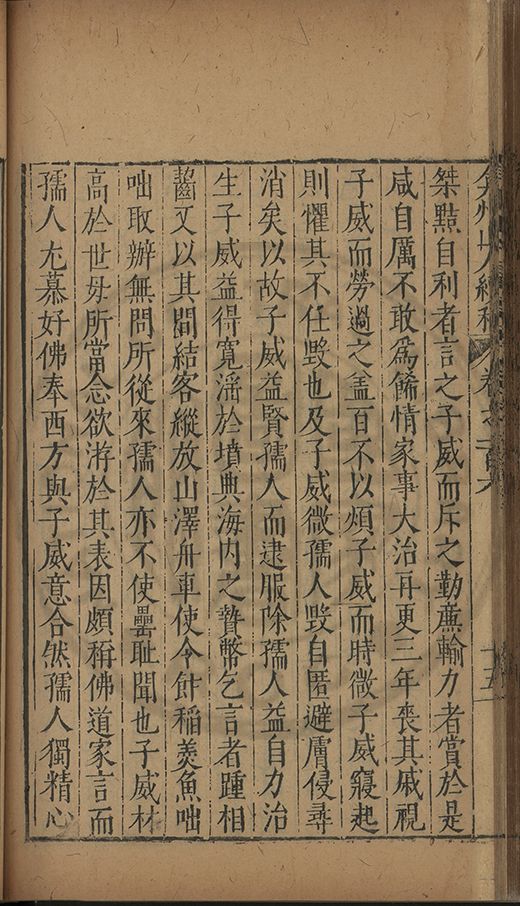 弇州山人續稿 卷之一百六 十五
桀黠自利者言之子威而斥之勤廉輸力者賞於是
咸自厲不敢爲餙情家事大治再更三年喪其戚視
子威而勞過之盖百不以煩子威而時微子威寢起
則懼其不任毀也及子威微孺人毀自匿避膚侵尋
消矣以故子威益賢孺人而逮服除孺人益自力治
生子威益得寬滛於墳典海內之贄幣乞言者踵相
齧又以其間結客縱放山澤舟車使令飰稻羮魚咄
咄取辦無問所從來孺人亦不使罍耻聞也子威材
高於世毋所當念欲游於其表因頗稱佛道家言而
孺人尤慕好佛奉西方與子威意合然孺人獨精心